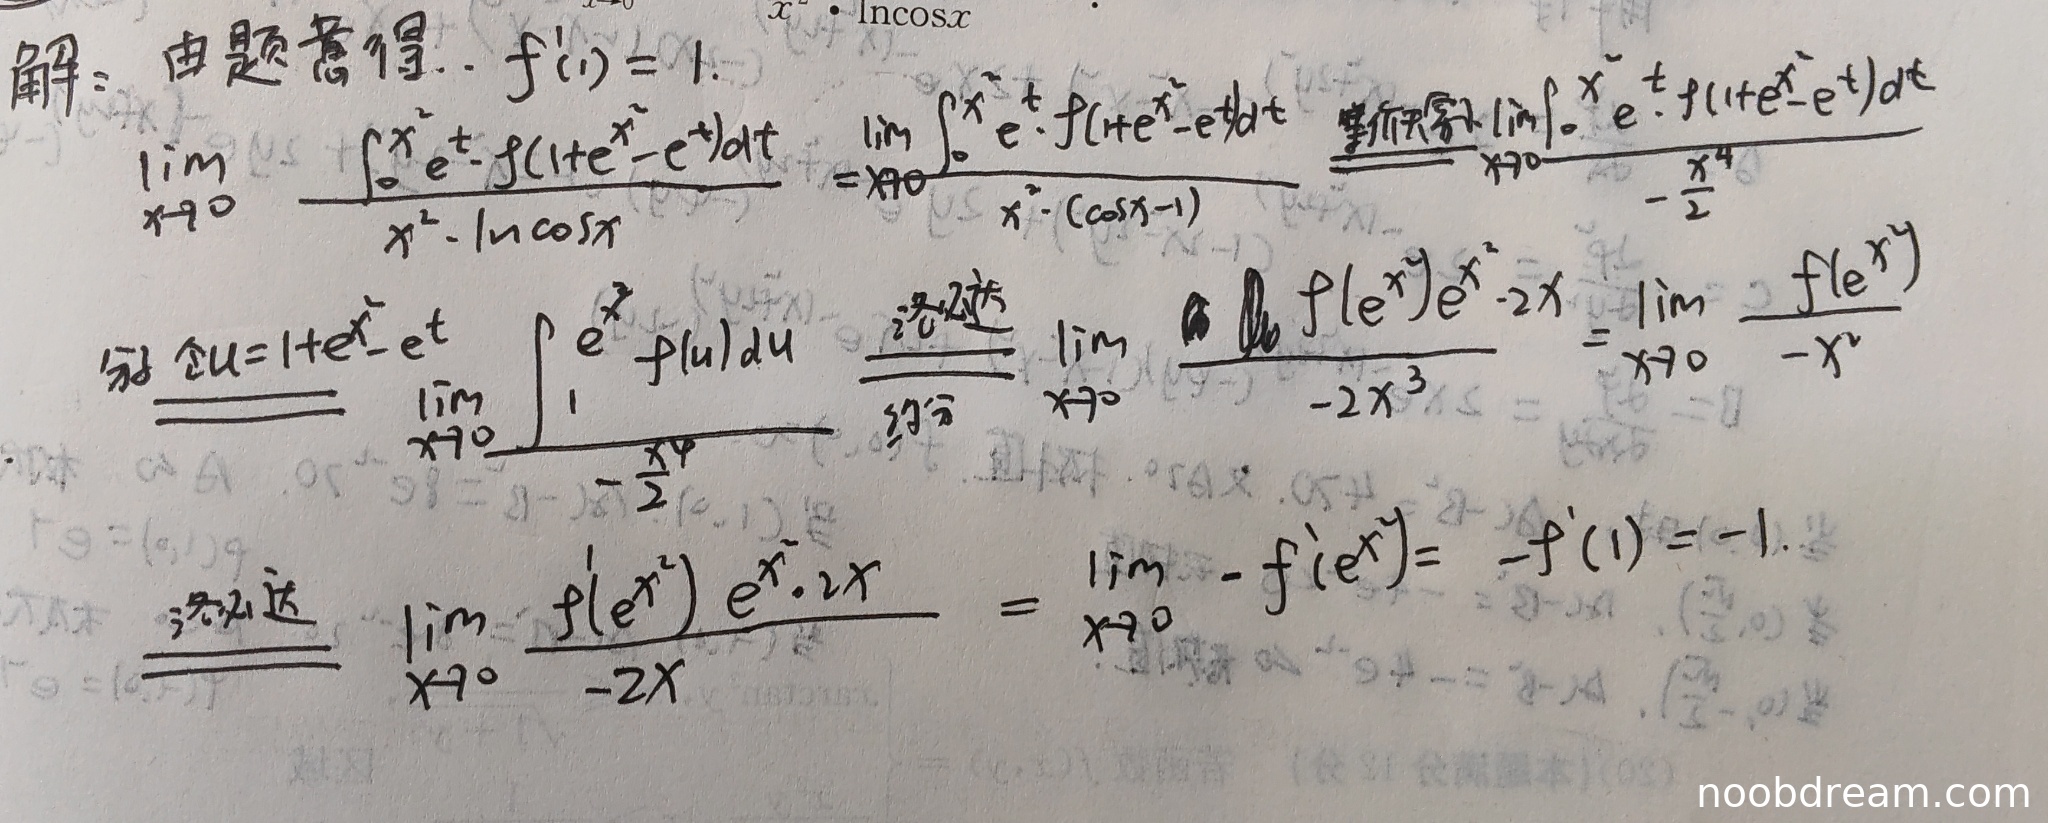 x² · lncosx
解: 由题意得.. f'(1) = 1.
lim x→0 ∫₀^{x²} e^t · f(1+e^{x²}-e^t)dt / x² · ln cosx = lim x→0 ∫₀^{x²} e^t · f(1+e^{x²}-e^t)dt / x² · (cosx-1) 等价无穷小 lim x→0 ∫₀^{x²} e^t · f(1+e^{x²}-e^t)dt / -x⁴/2
令u=1+e^{x²}-e^t lim x→0 ∫₁^{e^{x²}} f(u)du / -x⁴/2 洛必达 lim x→0 f(e^{x²})e^{x²}·2x / -2x³ = lim x→0 f(e^{x²}) / -x²
洛必达 lim x→0 f'(e^{x²}) e^{x²}·2x / -2x = lim x→0 - f'(e^{x²}) = -f'(1) = -1.
noobdream.com